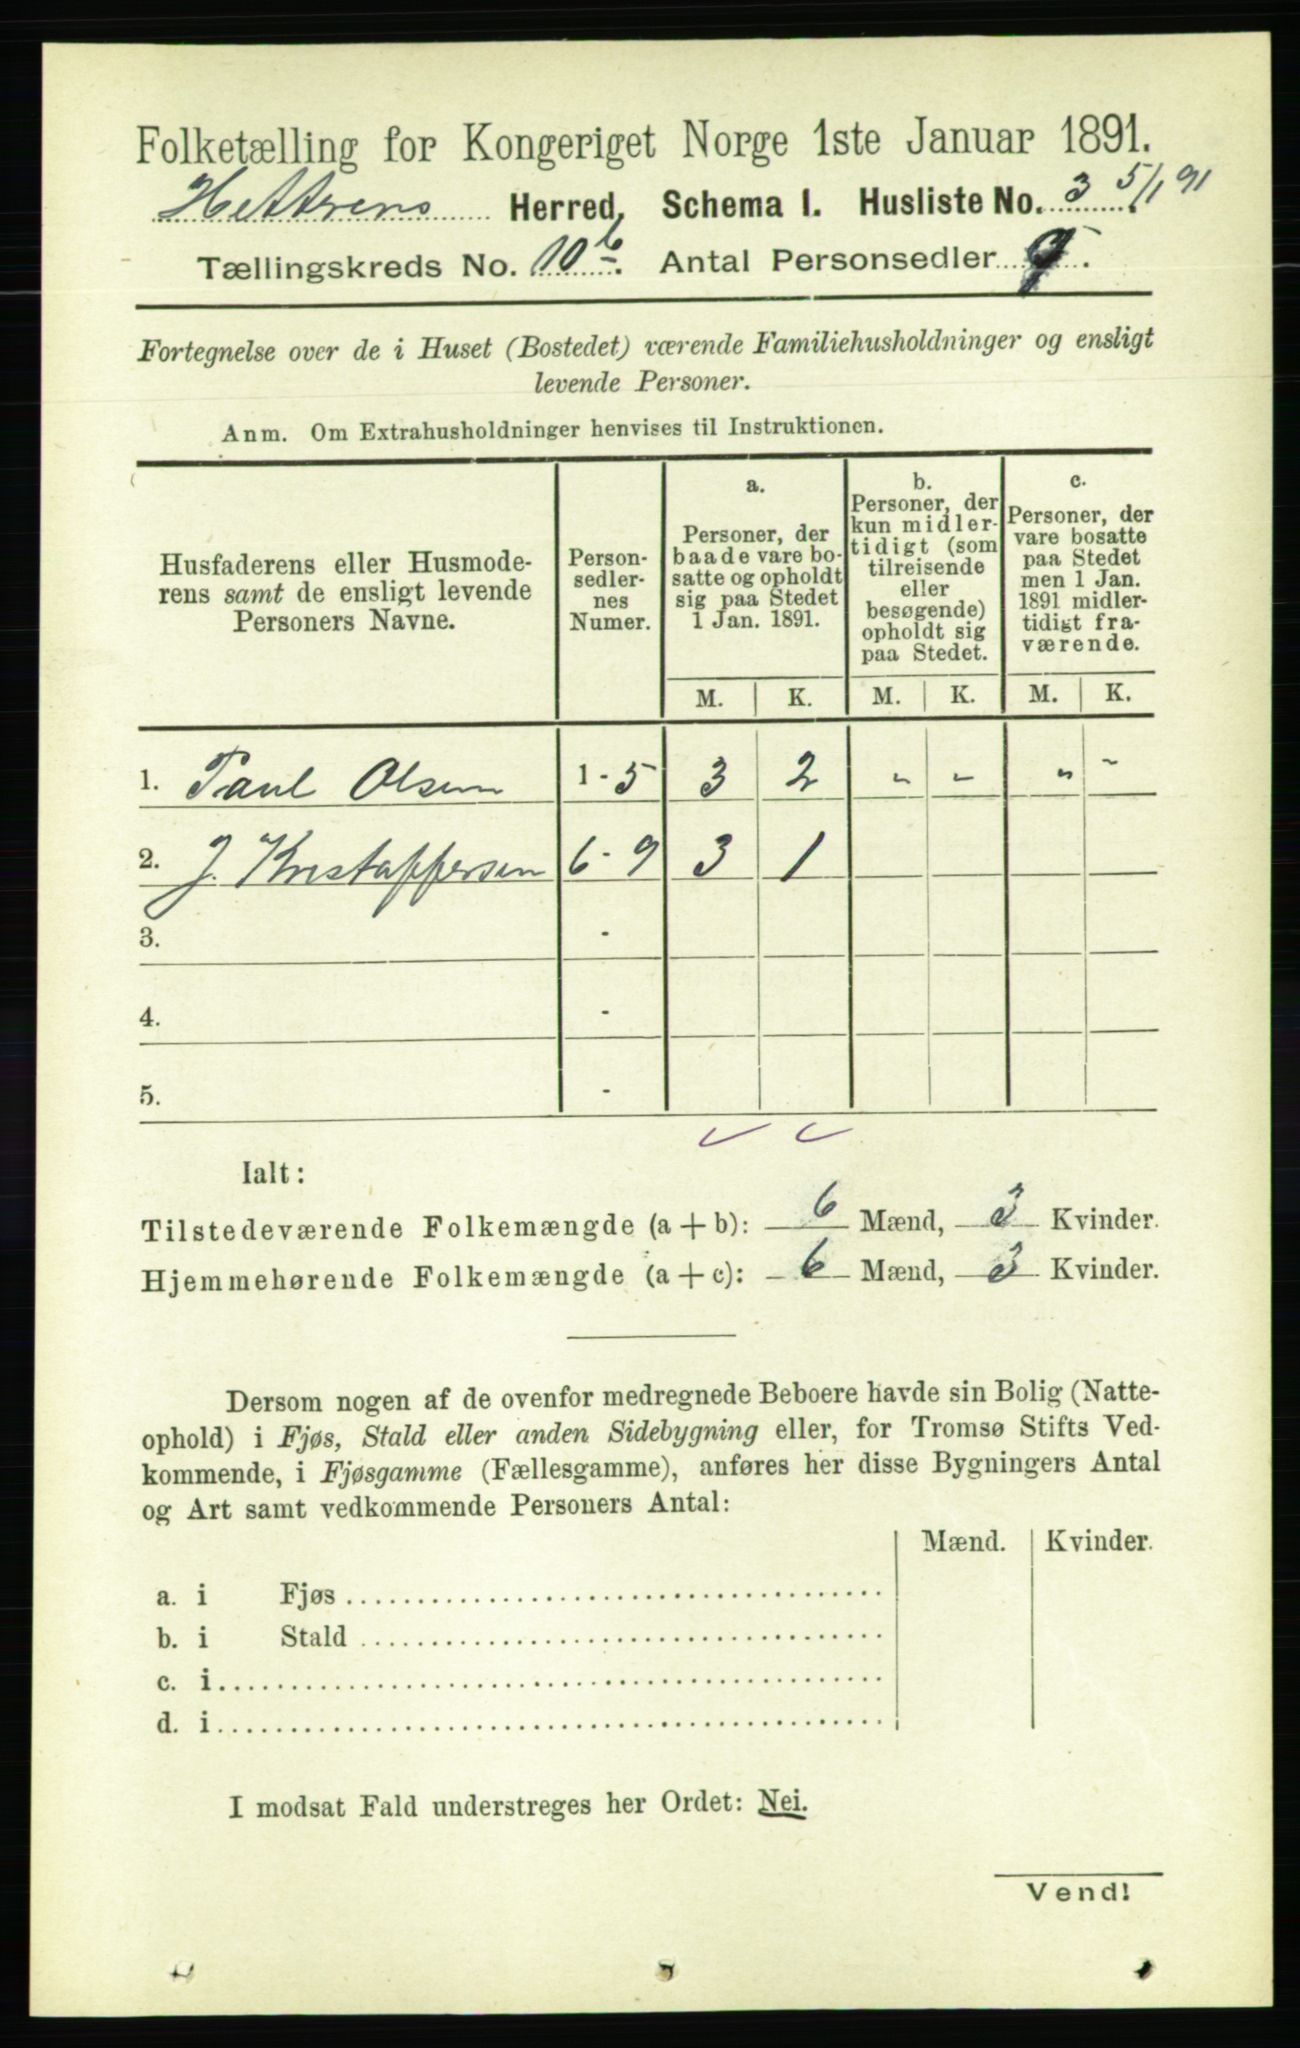 Folketælling for Kongeriget Norge 1ste Januar 1891.
Hitterens Herred, Schema I. Husliste No. 3. 5/1 91
Tællingskreds No. 10b. Antal Personsedler 9.
Fortegnelse over de i Huset (Bostedet) værende Familiehusholdninger og ensligt
levende Personer.
Anm. Om Extrahusholdninger henvises til Instruktionen.
Husfaderens eller Husmode-
rens samt de ensligt levende
Personers Navne.
Person-
sedler-
nes
Numer.
a.
Personer, der
baade vare bo-
satte og opholdt
sig paa Stedet
1 Jan. 1891.
b.
Personer, der
kun midler-
tidigt (som
tilreisende
eller
besøgende)
opholdt sig
paa Stedet.
c.
Personer, der
vare bosatte
paa Stedet
men 1 Jan.
1891 midler-
tidigt fra-
værende.
M. K. M. K. M. K.
1. Paul Olsen 1 - 5 3 2 " " " "
2. J. Kristoffersen 6 - 9 3 1
3. -
4. -
5. -
Ialt:
Tilstedeværende Folkemængde (a + b): 6 Mænd, 3 Kvinder.
Hjemmehørende Folkemængde (a + c): 6 Mænd, 3 Kvinder.
Dersom nogen af de ovenfor medregnede Beboere havde sin Bolig (Natte-
ophold) i Fjøs, Stald eller anden Sidebygning eller, for Tromsø Stifts Ved-
kommende, i Fjøsgamme (Fællesgamme), anføres her disse Bygningers Antal
og Art samt vedkommende Personers Antal:
Mænd. Kvinder.
a. i Fjøs
b. i Stald
c. i
d. i
I modsat Fald understreges her Ordet: Nei.
Vend!